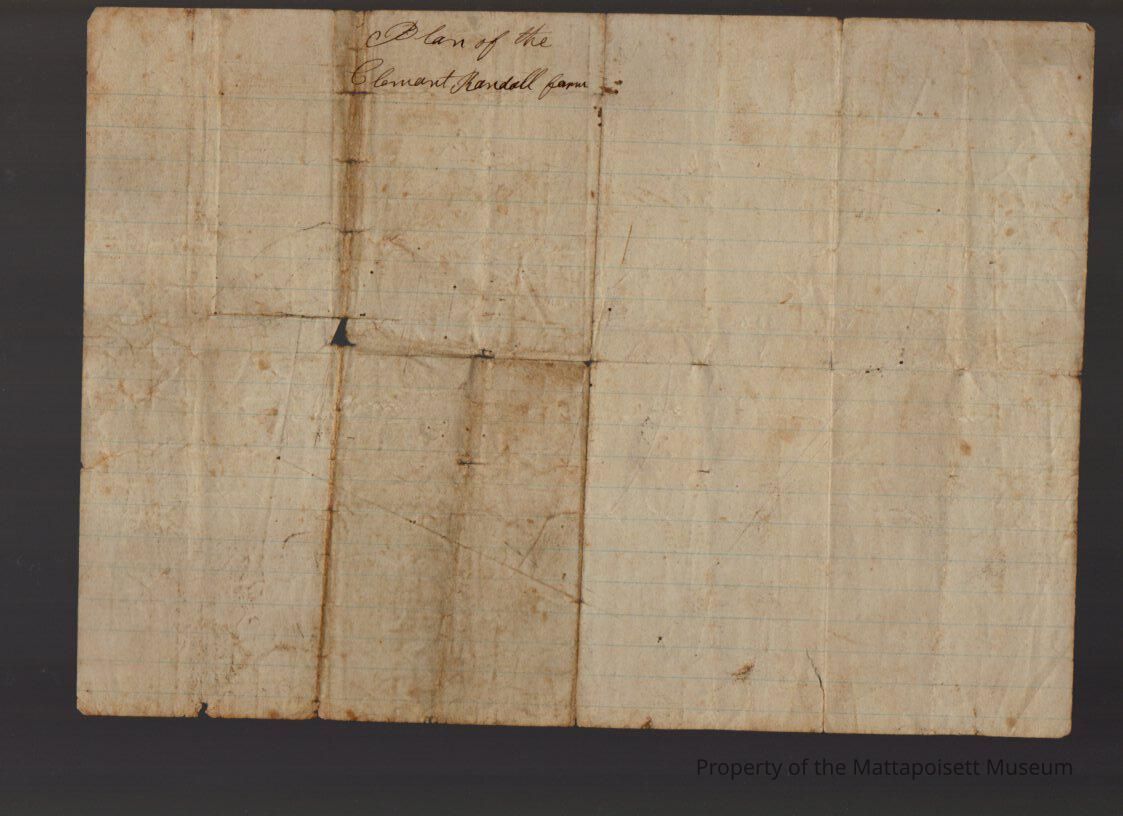 Plan of the
Clemant Randall farm
Property of the Mattapoisett Museum